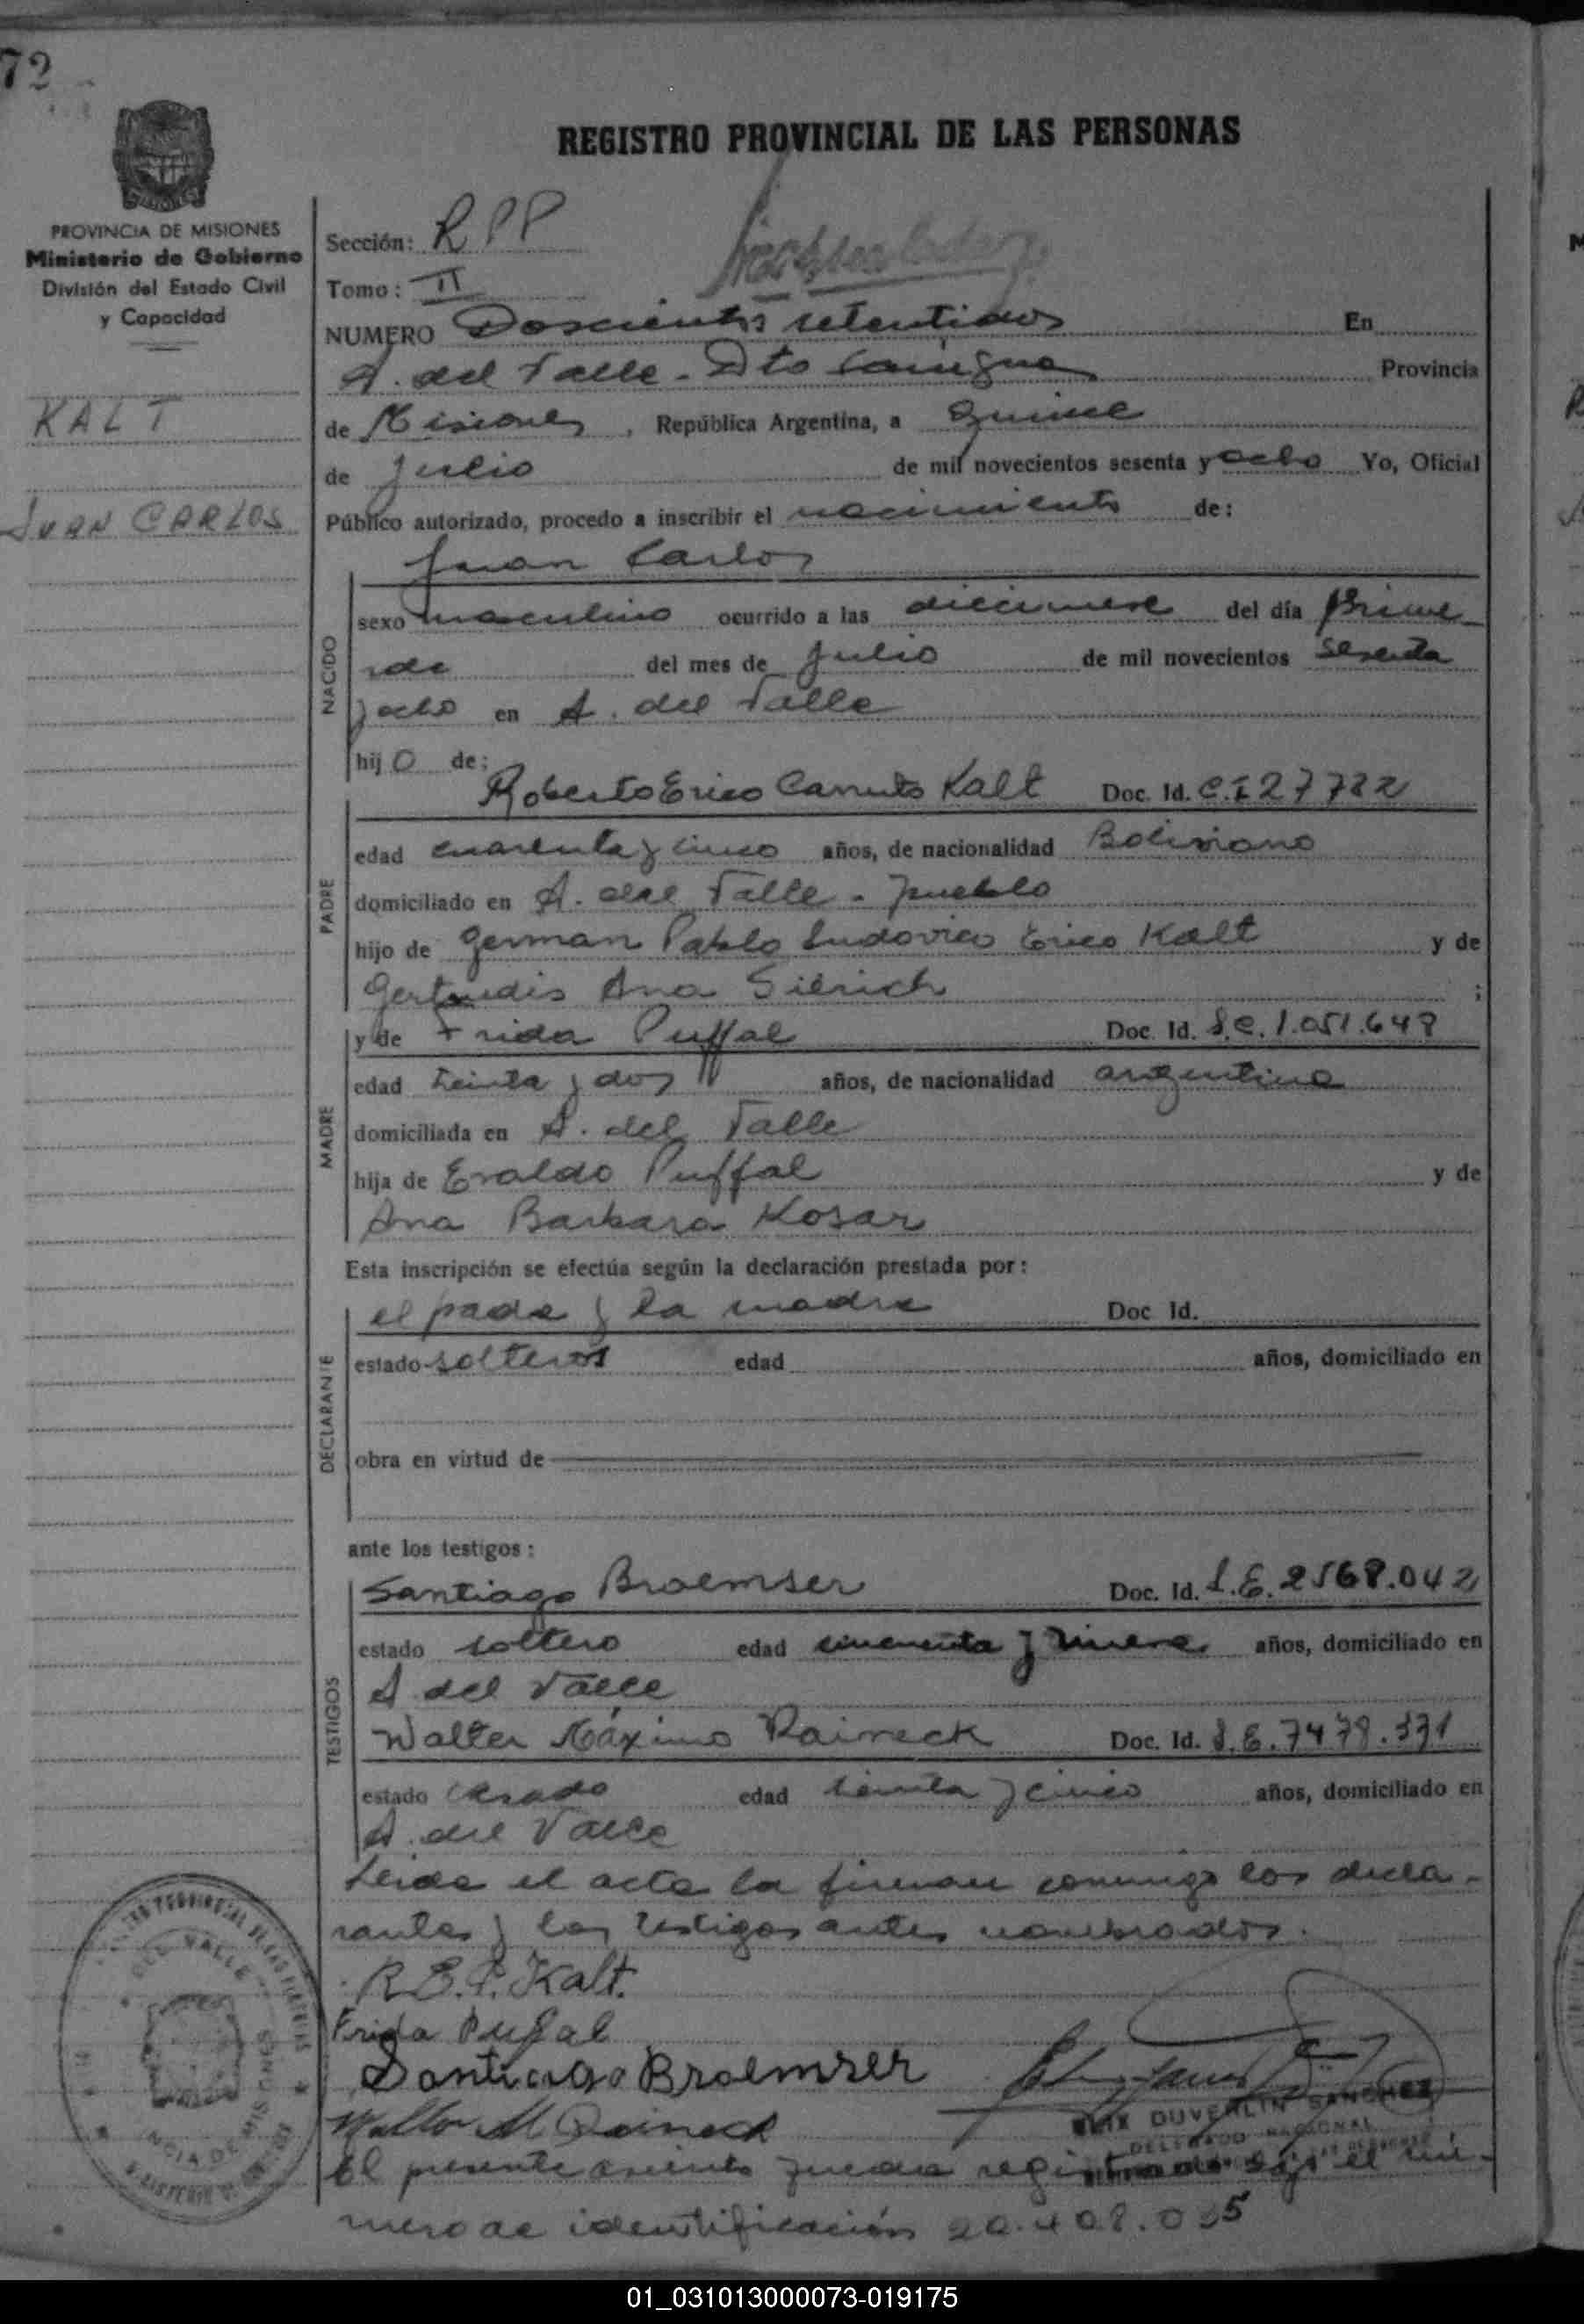 72
REGISTRO PROVINCIAL DE LAS PERSONAS
PROVINCIA DE MISIONES
Ministerio de Gobierno
División del Estado Civil
y Capacidad
KALT
JUAN CARLOS
Sección: RPP
Tomo: II
NUMERO Doscientos setentidos En
A. del Valle - Dto Cainguas Provincia
de Misiones, República Argentina, a Quince
de Julio de mil novecientos sesenta y ocho Yo, Oficial
Público autorizado, procedo a inscribir el nacimiento de:
Juan Carlos
NACIDO
sexo masculino ocurrido a las diecinueve del día Prime
ro de del mes de Julio de mil novecientos sesenta
y ocho en A. del Valle
hijo de:
PADRE
Roberto Erico Canuto Kalt Doc. Id. C.I 27722
edad cuarenta y cinco años, de nacionalidad Boliviano
domiciliado en A. del Valle - pueblo
hijo de German Pablo Ludovico Erico Kalt y de
Gertrudis Ana Silrich ;
MADRE
y de Frida Puffal Doc. Id. L.C. 1.051.648
edad treinta y dos años, de nacionalidad argentina
domiciliada en A. del Valle
hija de Evaldo Puffal y de
Ana Barbara Kosar
Esta inscripción se efectúa según la declaración prestada por:
DECLARANTE
el padre y la madre Doc. Id.
estado solteros edad años, domiciliado en
obra en virtud de
ante los testigos:
TESTIGOS
Santiago Broemser Doc. Id. L.E. 2568.042
estado soltero edad cincuenta y nueve años, domiciliado en
A. del Valle
Walter Máximo Raineck Doc. Id. L.E. 7478.371
estado casado edad treinta y cinco años, domiciliado en
A. del Valle
Leida el acta la firman conmigo los decla-
rantes y los testigos antes nombrados.
R.E.C. Kalt.
Frida Pufal
Santiago Broemser
Walter M Raineck
DUVERLIN SANCHEZ
El presente asiento queda registrado bajo el nú-
mero de identificación 20.408.035
DEL VALLE
01_031013000073-019175